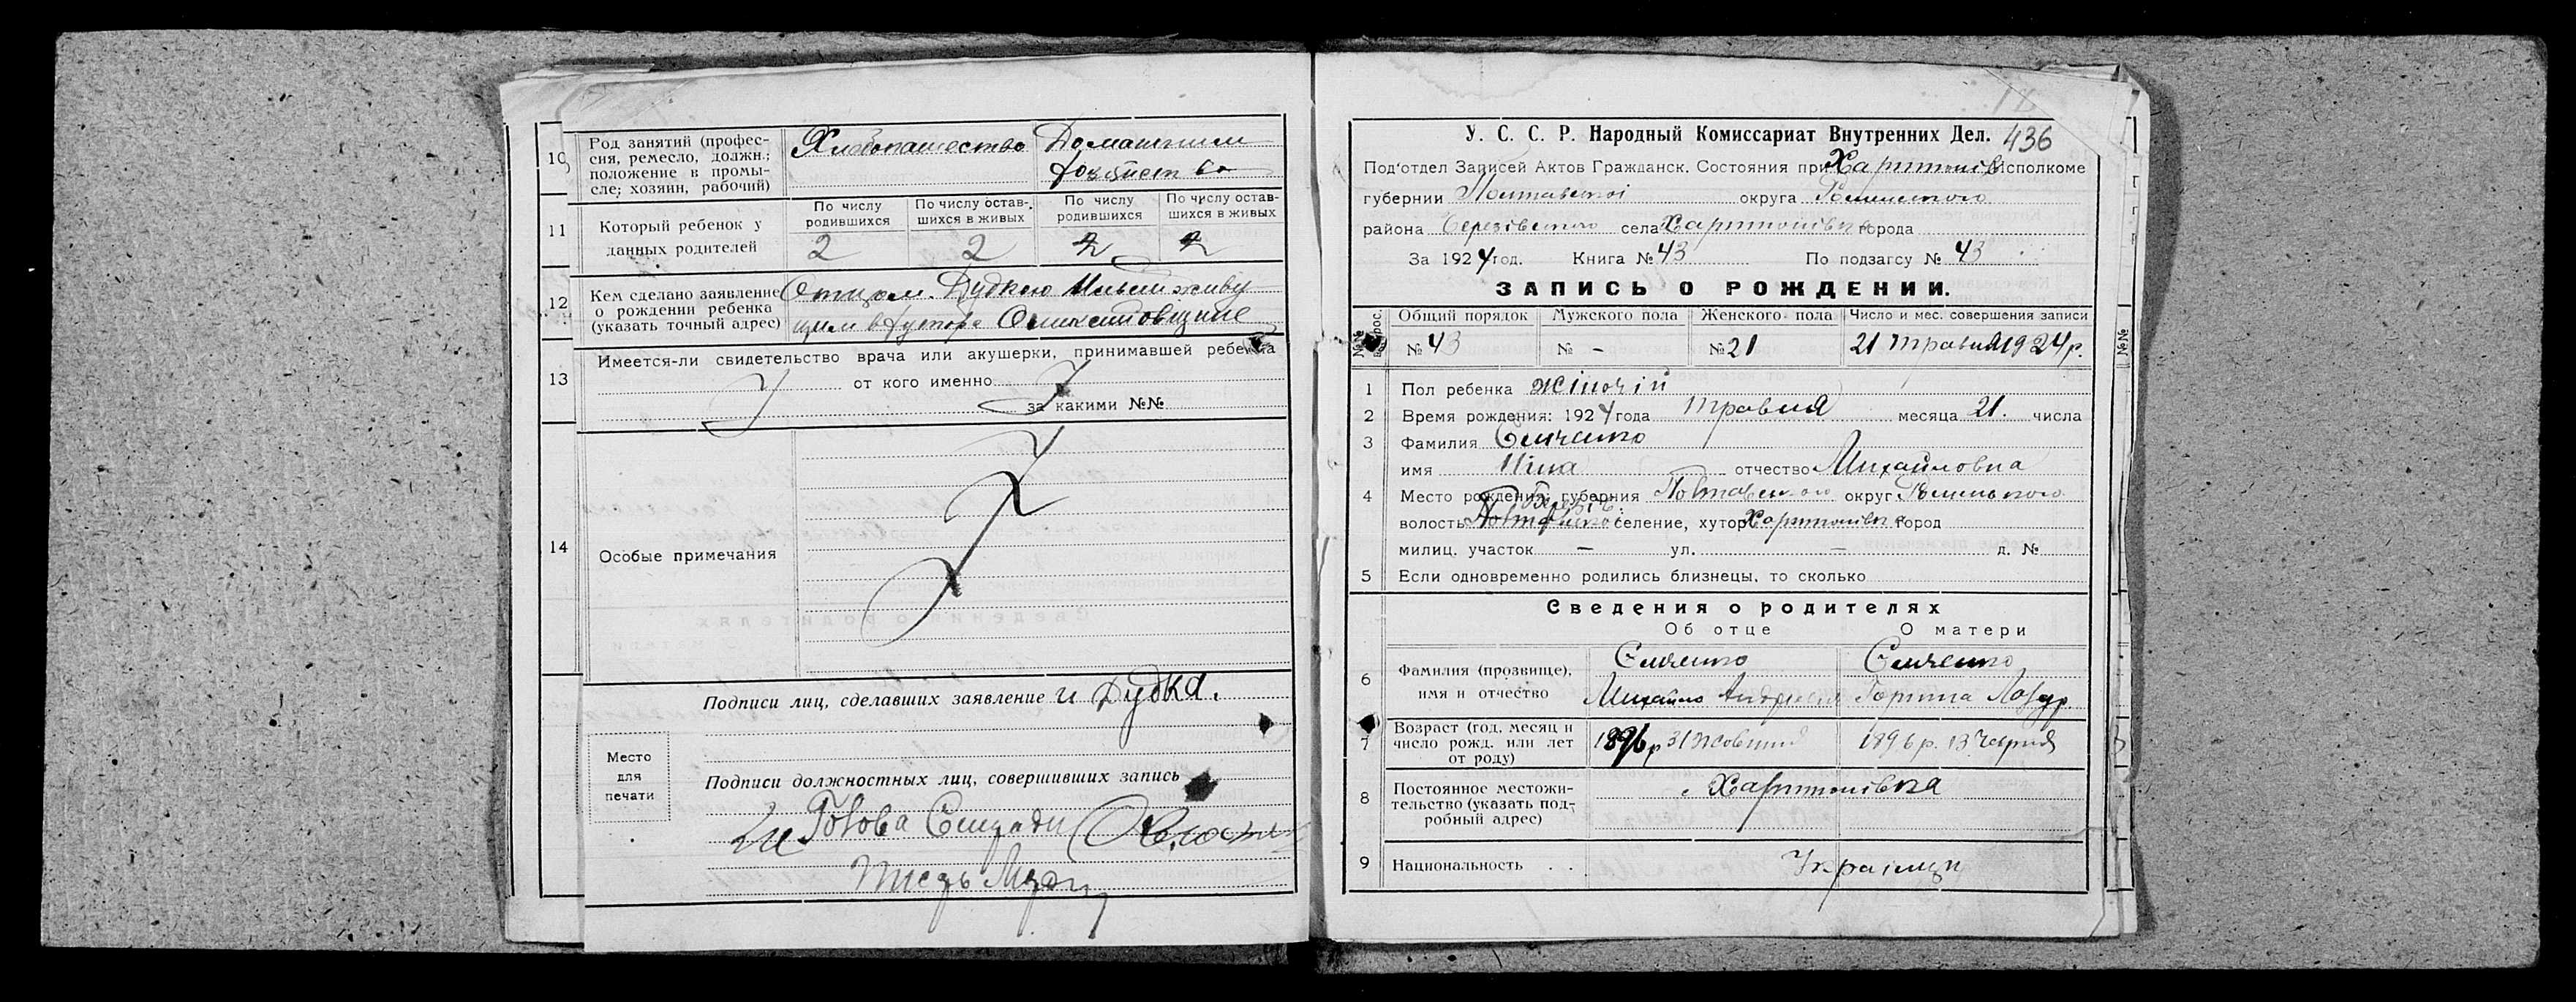 10
Род занятий (профес-
сия, ремесло, должн.;
положение в промы-
сле; хозяин, рабочий)
Хлебопашество
Домашним
хозяйство
11
Который ребенок у
данных родителей
По числу
родившихся
По числу остав-
шихся в живых
По числу
родившихся
По числу остав-
шихся в живых
2
2
2
2
12
Кем сделано заявление
о рождении ребенка
(указать точный адрес)
Отцом Дудкою Ильей живу
щим в хуторе
13
Имеется-ли свидетельство врача или акушерки, принимавшей ребенка
от кого именно
за какими №№
14
Особые примечания
Подписи лиц, сделавших заявление И Дудка.
Место
для
печати
Подписи должностных лиц, совершивших запись
Голова Сильради
436
У. С. С. Р. Народный Комиссариат Внутренних Дел.
Под'отдел Записей Актов Гражданск. Состояния при Исполкоме
губернии Полтавськоі округа Роменского
района села города
За 1924 год. Книга № 43 По подзагсу № 43
ЗАПИСЬ О РОЖДЕНИИ.
№№ вопрос.
Общий порядок
Мужского пола
Женского пола
Число и мес. совершения записи
№ 43
№ -
№ 21
21 травня 1924 р.
1 Пол ребенка жіночій
2 Время рождения: 1924 года травня месяца 21. числа
3 Фамилия
имя Ніна отчество Михайловна
4 Место рождения: губерния Полтавського округ Роменського
волость селение, хутор город
милиц. участок — ул. — д. №
5 Если одновременно родились близнецы, то сколько
Сведения о родителях
Об отце
О матери
6
Фамилия (прозвище),
имя и отчество
Михайло
7
Возраст (год, месяц и
число рожд. или лет
от роду)
1896 р 31 жовтня
1896 р. 13 червня
8
Постоянное местожи-
тельство (указать под-
робный адрес)
9
Национальность . .
Українці
№№